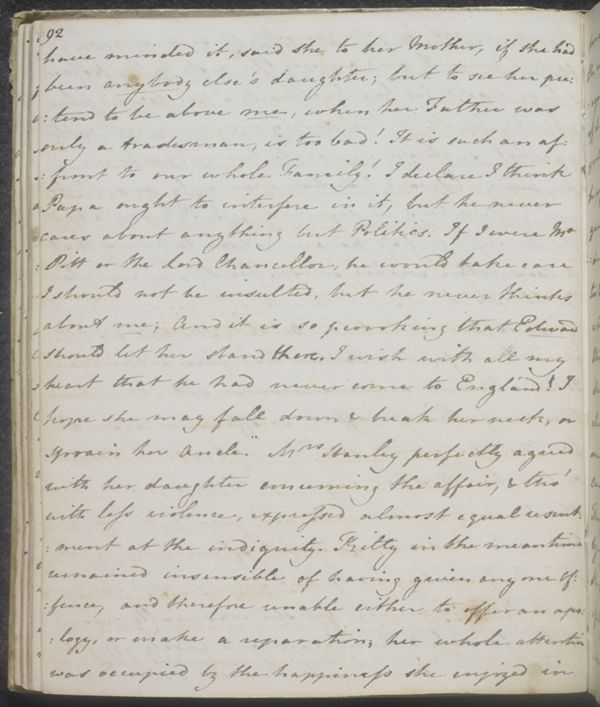 92
have minded it, said she to her Mother, if she had
been anybody else's daughter; but to see her pre:
:tend to be above me, when her Father was
only a tradesman, is too bad! It is such an af:
:front to our whole Family! I declare I think
Papa ought to interfere in it, but he never
cares about anything but Politics. If I were Mr
Pitt or the Lord Chancellor, he would take care
I should not be insulted, but he never thinks
about me; And it is so provoking that Edward
should let her stand there. I wish with all my
heart that he had never come to England! I
hope she may fall down & break her neck, or
sprain her Ancle." Mrs Stanley perfectly agreed
with her daughter concerning the affair, & tho'
with less violence, expressed almost equal resent:
:ment at the indignity. Kitty in the meantime
remained insensible of having given any one Of:
:fence, and therefore unable either to offer an apo:
:logy, or make a reparation; her whole attention
was occupied by the happiness she enjoyed in